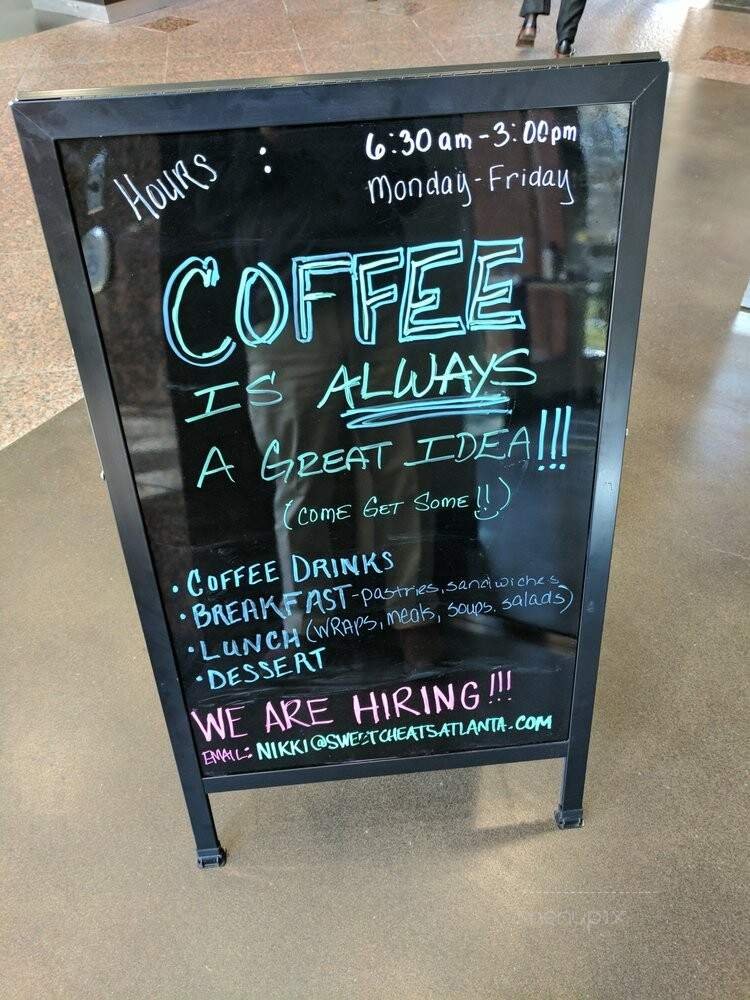 Hours : 6:30 am - 3:00pm
Monday - Friday
COFFEE
IS ALWAYS
A GREAT IDEA!!!
(COME GET SOME!!)
• COFFEE DRINKS
• BREAKFAST - pastries, sandwiches
• LUNCH (WRAPS, meals, soups, salads)
• DESSERT
WE ARE HIRING!!!
EMAIL: NIKKI@SWEETCHEATSATLANTA.COM